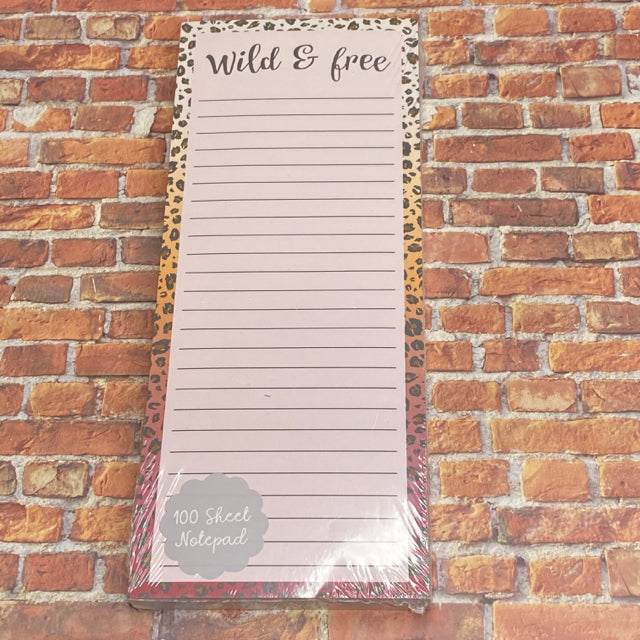 Wild & free
100 Sheet
Notepad